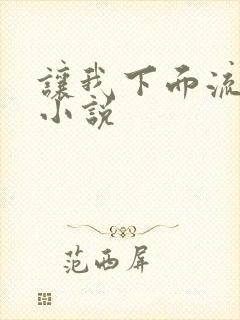 讓我下而流
小說
范西屏